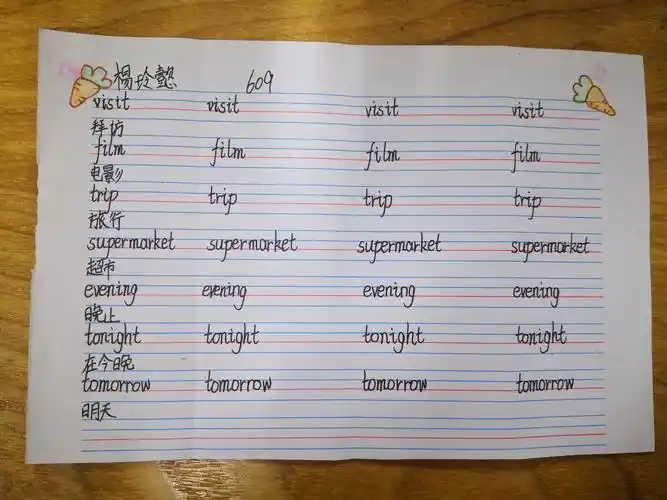 杨玲懿 609
visit visit visit visit
拜访
film film film film
电影
trip trip trip trip
旅行
supermarket supermarket supermarket supermarket
超市
evening evening evening evening
晚上
tonight tonight tonight tonight
在今晚
tomorrow tomorrow tomorrow tomorrow
明天